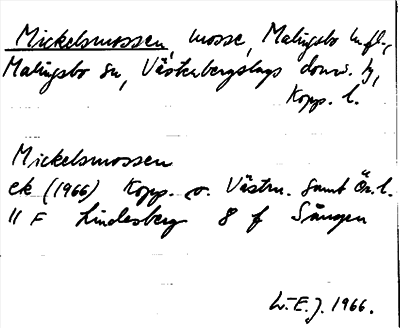 Mickelsmossen, mosse, Malingsbo knfl.,
Malingsbo sn, Västerbergslags doms. h,
Kopp. l.
Mickelsmossen
ek (1966) Kopp. o. Västm. samt Ör. l.
11 F Lindesberg 8 f Sången
L.E.J. 1966.